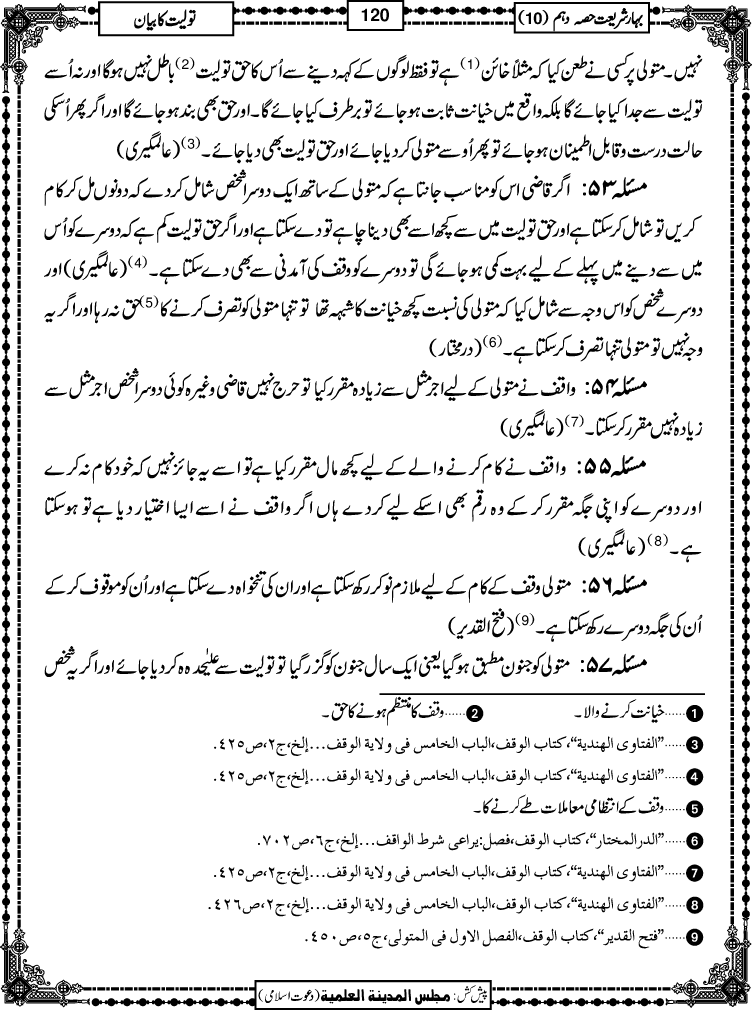 بہارِ شریعت حصہ دہم (10)
120
تولیت کا بیان
نہیں۔ متولی پر کسی نے طعن کیا کہ مثلاً خائن (1) ہے تو فقط لوگوں کے کہہ دینے سے اُس کا حق تولیت (2) باطل نہیں ہوگا اور نہ اُسے
تولیت سے جدا کیا جائے گا بلکہ واقع میں خیانت ثابت ہوجائے تو برطرف کیا جائے گا۔ اور حق بھی بند ہوجائے گا اور اگر پھر اُسکی
حالت درست و قابل اطمینان ہوجائے تو پھر اُوسے متولی کردیا جائے اور حق تولیت بھی دیا جائے۔ (3) (عالمگیری)
مسئلہ ۵۳: اگر قاضی اس کو مناسب جانتا ہے کہ متولی کے ساتھ ایک دوسرا شخص شامل کردے کہ دونوں مل کر کام
کریں تو شامل کرسکتا ہے اور حق تولیت میں سے کچھ اسے بھی دینا چاہے تو دے سکتا ہے اور اگر حق تولیت کم ہے کہ دوسرے کو اُس
میں سے دینے میں پہلے کے لیے بہت کمی ہوجائے گی تو دوسرے کو وقف کی آمدنی سے بھی دے سکتا ہے۔ (4) (عالمگیری) اور
دوسرے شخص کو اس وجہ سے شامل کیا کہ متولی کی نسبت کچھ خیانت کا شبہہ تھا تو تنہا متولی کو تصرف کرنے کا (5) حق نہ رہا اور اگر یہ
وجہ نہیں تو متولی تنہا تصرف کرسکتا ہے۔ (6) (درمختار)
مسئلہ ۵۴: واقف نے متولی کے لیے اجر مثل سے زیادہ مقرر کیا تو حرج نہیں قاضی وغیرہ کوئی دوسرا شخص اجر مثل سے
زیادہ نہیں مقرر کرسکتا۔ (7) (عالمگیری)
مسئلہ ۵۵: واقف نے کام کرنے والے کے لیے کچھ مال مقرر کیا ہے تو اسے یہ جائز نہیں کہ خود کام نہ کرے
اور دوسرے کو اپنی جگہ مقرر کرکے وہ رقم بھی اسکے لیے کردے ہاں اگر واقف نے اسے ایسا اختیار دیا ہے تو ہوسکتا
ہے۔ (8) (عالمگیری)
مسئلہ ۵۶: متولی وقف کے کام کے لیے ملازم نوکر رکھ سکتا ہے اور ان کی تنخواہ دے سکتا ہے اور اُن کو موقوف کرکے
اُن کی جگہ دوسرے رکھ سکتا ہے۔ (9) (فتح القدیر)
مسئلہ ۵۷: متولی کو جنون مطبق ہوگیا یعنی ایک سال جنون کو گزر گیا تو تولیت سے علیٰحدہ کردیا جائے اور اگر یہ شخص
1 ......خیانت کرنے والا۔ 2 ......وقف کا منتظم ہونے کا حق۔
3 ......"الفتاوى الهندية"، كتاب الوقف، الباب الخامس في ولاية الوقف...إلخ، ج٢، ص٤٢٥.
4 ......"الفتاوى الهندية"، كتاب الوقف، الباب الخامس في ولاية الوقف...إلخ، ج٢، ص٤٢٥.
5 ......وقف کے انتظامی معاملات طے کرنے کا۔
6 ......"الدر المختار"، كتاب الوقف، فصل: يراعى شرط الواقف...إلخ، ج٦، ص٧٠٢.
7 ......"الفتاوى الهندية"، كتاب الوقف، الباب الخامس في ولاية الوقف...إلخ، ج٢، ص٤٢٥.
8 ......"الفتاوى الهندية"، كتاب الوقف، الباب الخامس في ولاية الوقف...إلخ، ج٢، ص٤٢٦.
9 ......"فتح القدير"، كتاب الوقف، الفصل الاول في المتولى، ج٥، ص٤٥٠.
پیش کش: مجلس المدینة العلمیة (دعوت اسلامی)